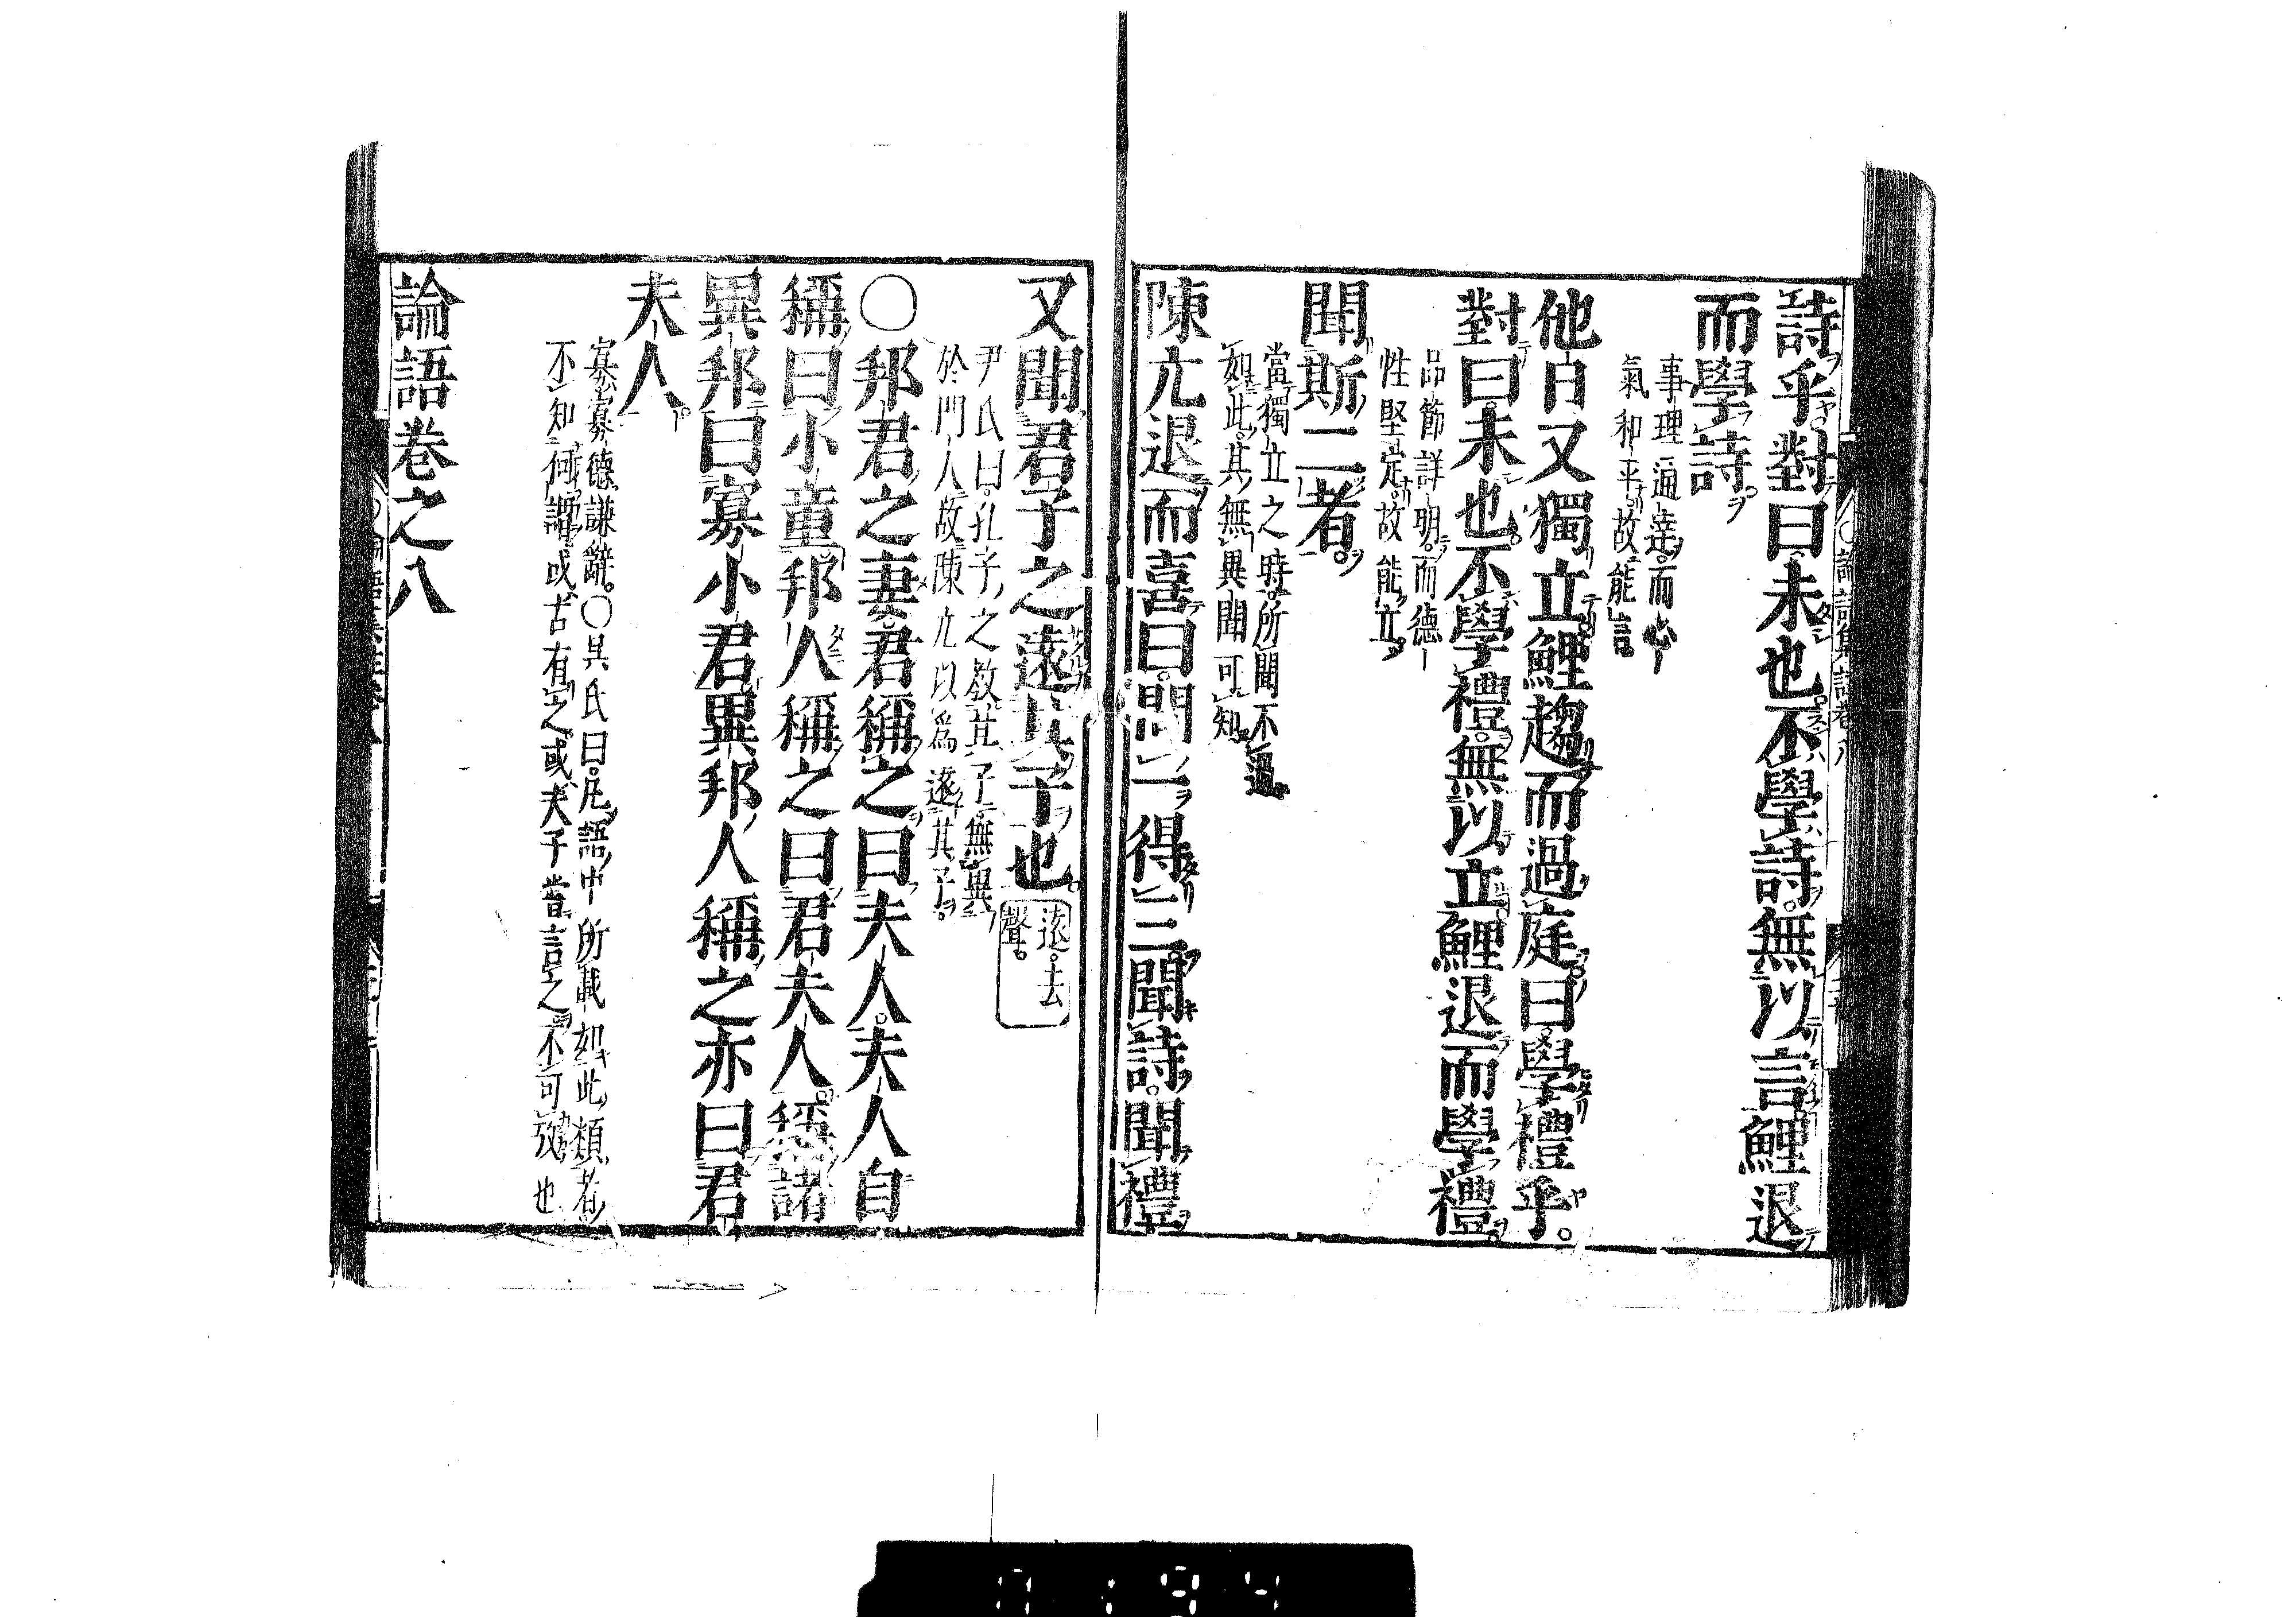 詩乎對曰未也不學詩無以言鯉退
而學詩
事理通達而心
氣和平故能言
他日又獨立鯉趨而過庭曰學禮乎
對曰未也不學禮無以立鯉退而學禮
品節詳明而德
性堅定故能立
聞斯二者
當獨立之時所聞不過
如此其無異聞可知
陳亢退而喜曰問一得三聞詩聞禮
又聞君子之遠其子也
遠去
聲
尹氏曰孔子之教其子無異
於門人故陳亢以爲遠其子
〇邦君之妻君稱之曰夫人夫人自
稱曰小童邦人稱之曰君夫人稱諸
異邦曰寡小君異邦人稱之亦曰君
夫人
寡寡德謙辭〇吳氏曰凡語中所載如此類者
不知何謂或古有之或夫子嘗言之不可攷也
論語卷之八